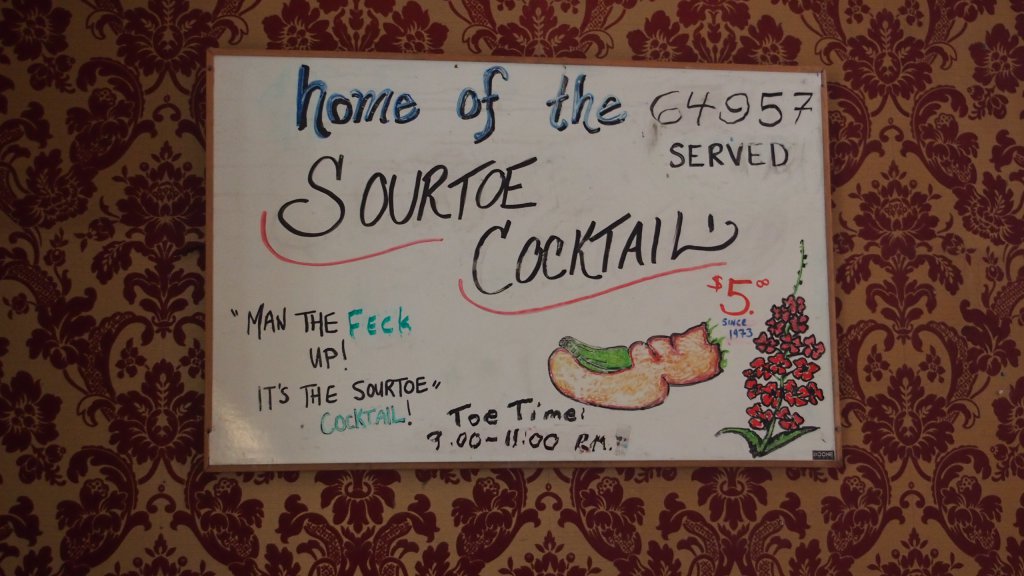 home of the 64957
SERVED
SOURTOE
COCKTAIL
$5.00
SINCE
1973
"MAN THE FECK
UP!
IT'S THE SOURTOE"
COCKTAIL!
Toe Time:
9:00-11:00 P.M.